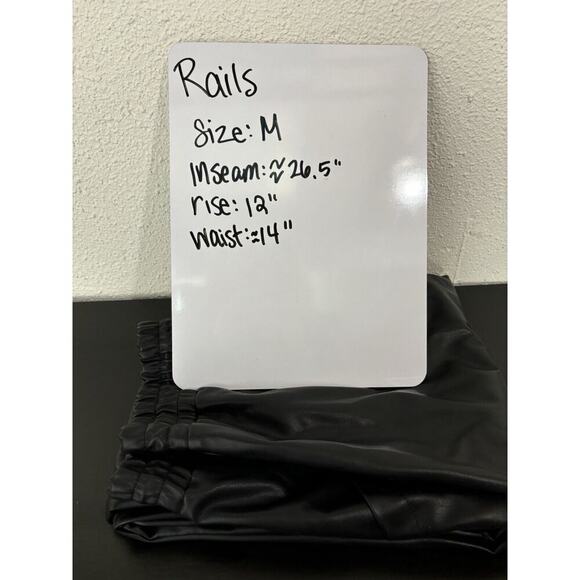 Rails
Size: M
Inseam: ≈ 26.5"
rise: 12"
waist: ≈14"